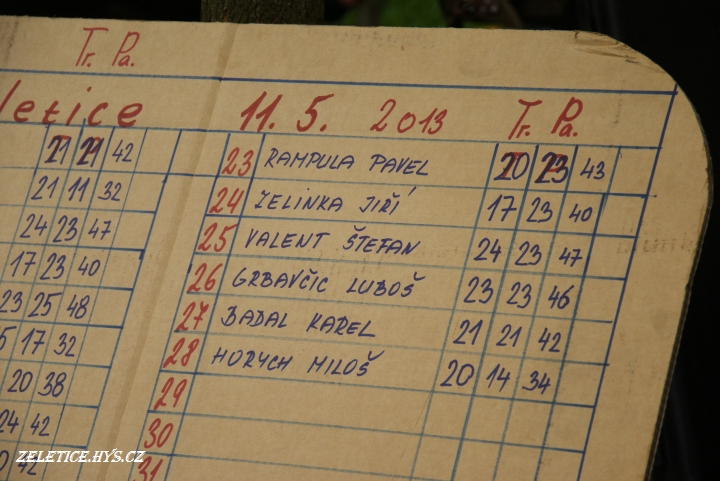 Tr. Pa.
letice 11. 5. 2013 Tr. Pa.
21 21 42 23 RAMPULA PAVEL 20 23 43
21 11 32 24 ZELINKA JIŘÍ 17 23 40
24 23 47 25 VALENT ŠTEFAN 24 23 47
17 23 40 26 GRBAVČIC LUBOŠ 23 23 46
23 25 48 27 BADAL KAREL 21 21 42
5 17 32 28 HORYCH MILOŠ 20 14 34
20 38 29
24 42 30
0 42 31
ZELETICE.HYS.CZ